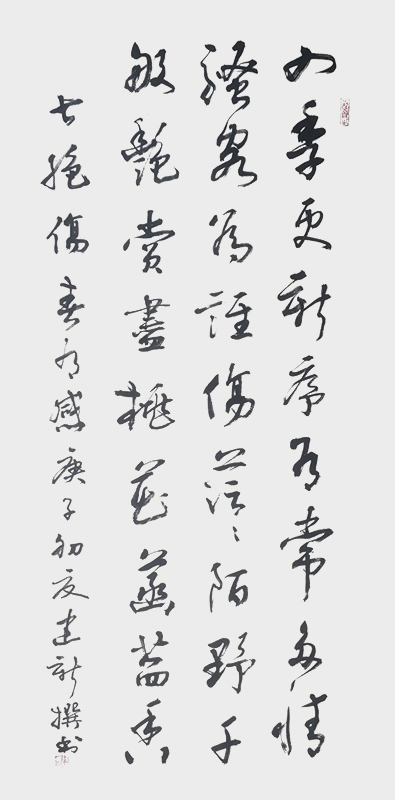 四季更新序有常多情
騷客為誰傷茫茫陌野千
般艷賞盡桃花菡萏香
七絕傷春有感庚子初夏建新撰書